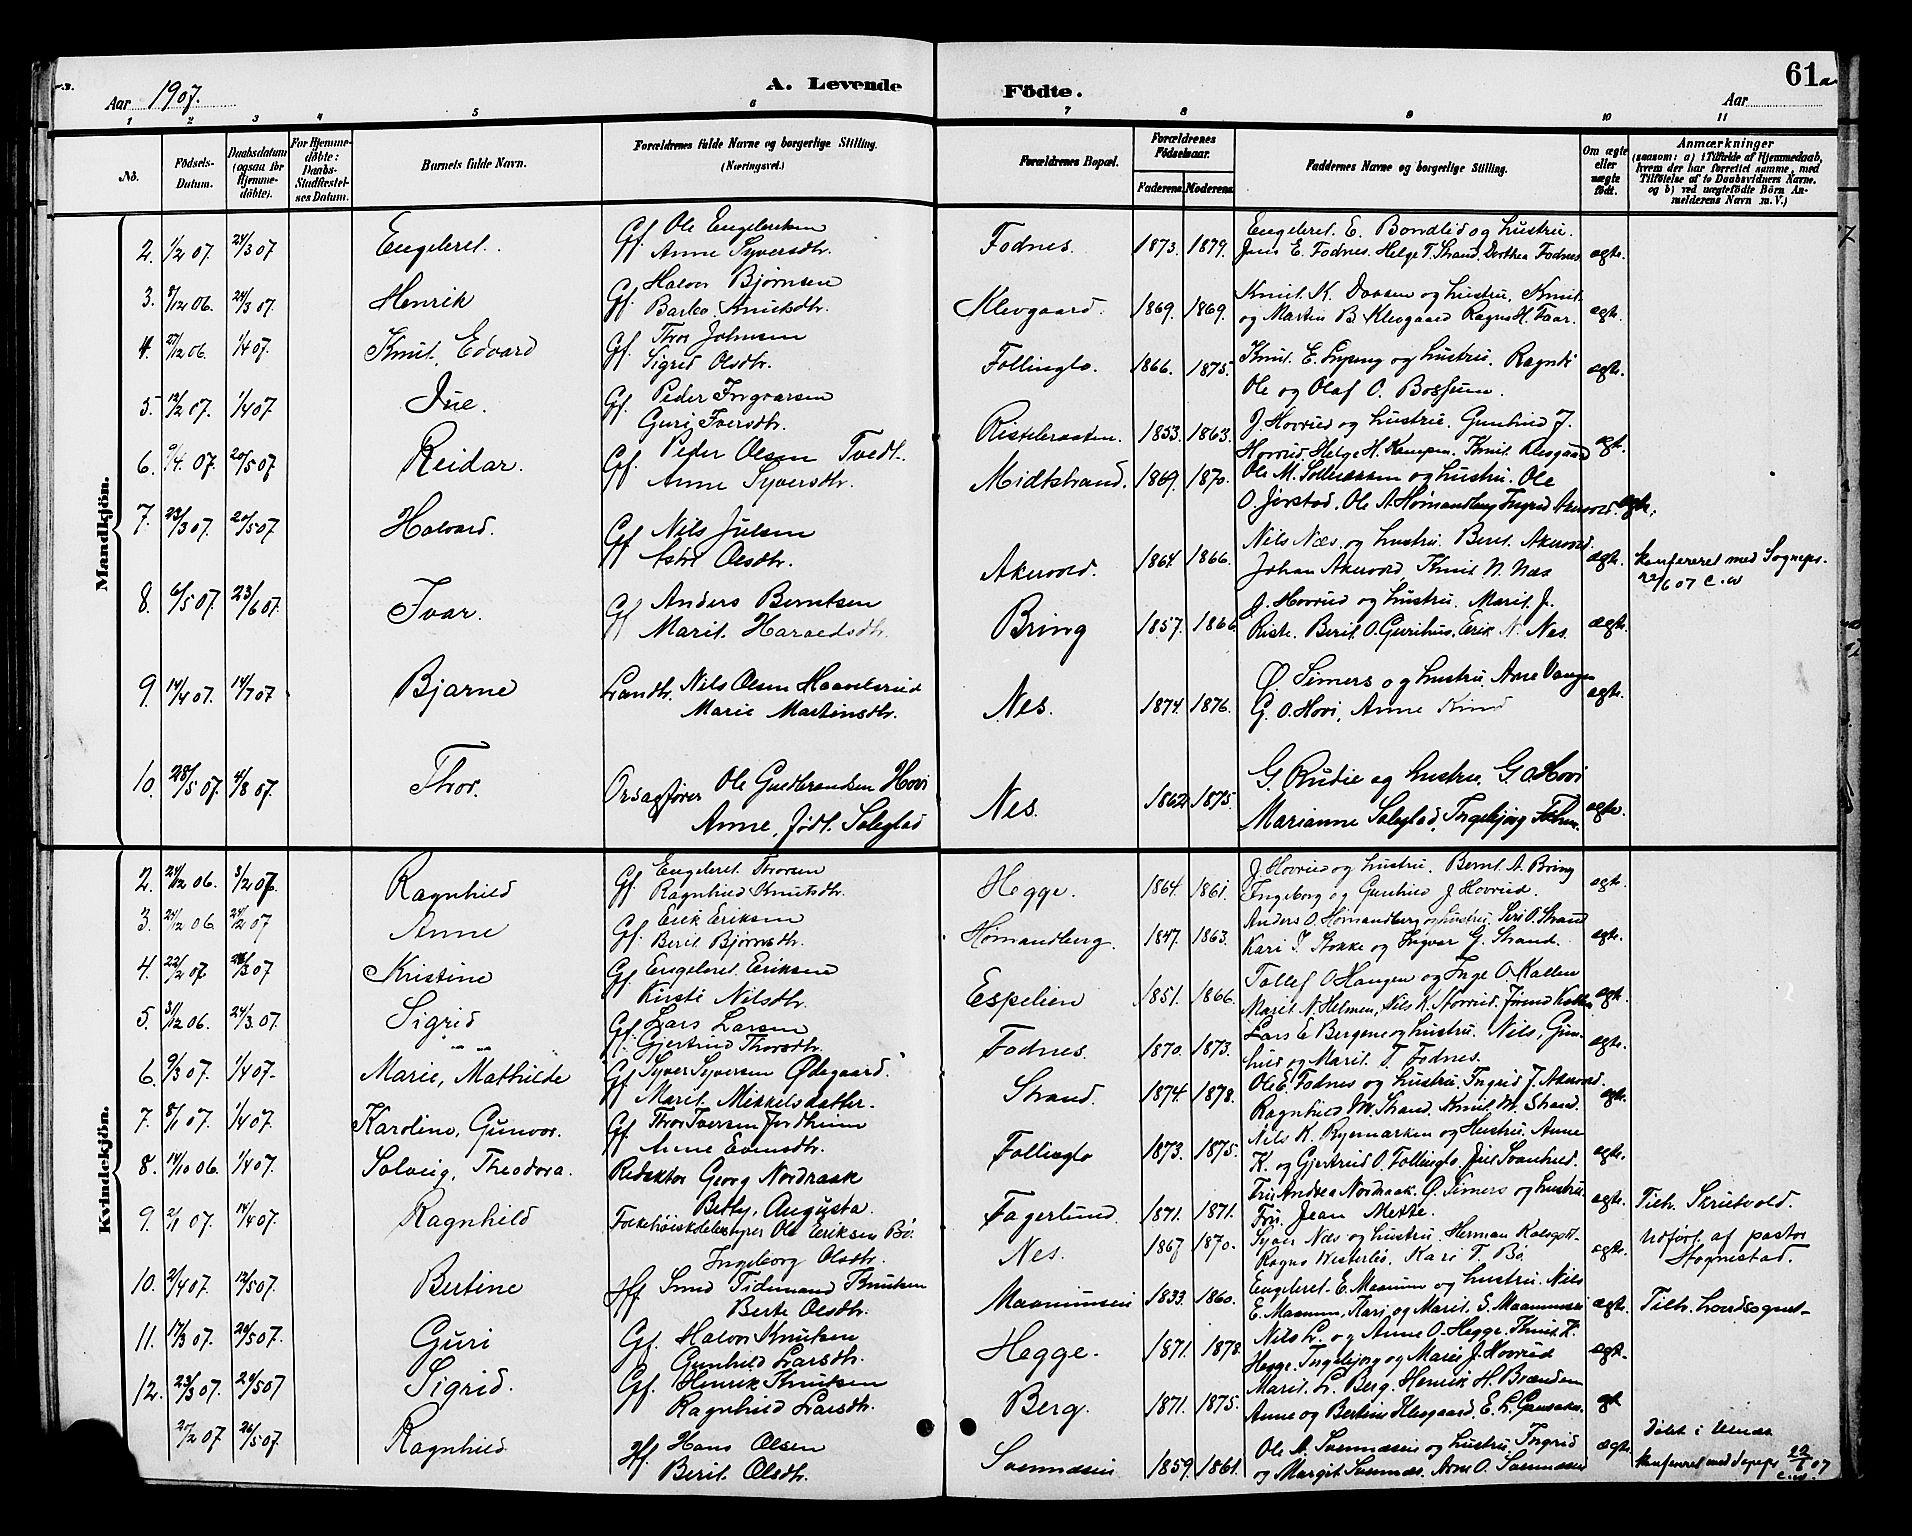 Aar 1907.
A. Levende
Fødte.
61a
Aar
1 2 3 4 5 6 7 8 9 10 11
No.
Fødsels-Datum.
Daabsdatum (ogsaa for Hjemmedøbte).
For Hjemmedøbte: Daabs-Stadfæstelses Datum.
Barnets fulde Navn.
Forældrenes fulde Navne og borgerlige Stilling. (Næringsvei.)
Forældrenes Bopæl.
Forældrenes Fødselsaar.
Faderens. Moderens.
Faddernes Navne og borgerlige Stilling.
Om ægte eller uægte født.
Anmærkninger (saasom: a) i Tilfælde af Hjemmedaab, hvem der har forrettet samme, med Tilføielse af to Daabsvidners Navne, og b) ved uægtefødte Børn Anmelderens Navn m. V.)
Mandkjøn.
2. 1/2 07. 24/3 07 Engebret. Gf. Ole Engebretsen Anne Syversdtr. Fodnes. 1873. 1879. Engebret. E. Bondlid og hustru. Jens E. Fodnes. Helge T. Strand. Dorthea Fodnes ægte.
3. 8/12 06. 24/3 07. Henrik Gf. Halvor Bjørnsen Barbro Knutsdtr. Klevgaard. 1869. 1869. Knut K. og hustru, Knut og Martin B. Klevgaard Ragna H. ægte.
4. 27/12 06. 1/4 07. Knut, Edvard Gf. Thor Johnsen Sigrid Olsdtr. Follinglo. 1866. 1875. Knut E. og hustru. Ole og Olaf O. ægte.
5. 12/2 07. 1/4 07. Gf. Peder Ingvarsen Guri Iversdtr. 1853. 1863. J. Hovrud og hustru. Gunhild J. Hovrud, Helge H. Kampen. Knut Klevgaard ægt.
6. 9/4. 07. 20/5 07 Reidar. Gf. Peder Olsen Tvedt. Anne Syversdtr. Midtstrand. 1869. 1870. Ole M. og hustru. Ole O. Jørstad, Ole A. Hømandberg Ingrid ægte.
7. 23/3 07. 20/5 07 Halvard. Gf Nils Julsen Olsdtr. Akervold. 1864. 1866. Nils Næs og hustru. Berit Akervold. Johan Akervold Knut N. Næs ægte. konfereret med Sogneps. 22/6 07 C. W
8. 6/5 07. 23/6 07. Ivar. Gf Anders Berntsen Marit Haraldsdtr. Bring 1857. 1866. J. Hovrud og hustru. Marit J. Riste. Berit O. Gurihus. Erik N. Nes. ægte.
9. 14/4 07. 14/7 07 Bjarne Landh. Nils Olsen Haavelsrud Marie Martinsdtr. Nes. 1874. 1876. Ø. Simers og hustru. Arne Vangen G. O. Hovi, Anne ægte.
10. 28/5 07. 4/8 07. Thor. Ole Gudbrandsen Hovi Anne, født Solegtad Nes. 1862. 1875. G. Rudie og hustru. G. O. Hovi Marianne Solegtad, Ingebjørg ægte
Kvindekjøn.
2. 24/12 06. 3/2 07. Ragnhild Gf. Engebret Thorsen Ragnhild Knutsdtr. Hegge. 1864. 1861. J. Hovrud og hustru. Bernt A. Bring Ingeborg og Gunhild J. Hovrud. ægte.
3. 24/12 06. 24/2 07 Anne Gf. Erik Eriksen Berit Bjørnsdtr. Hømandberg. 1847. 1863. Anders O. Hømandberg og hustru, Siri O. Strand Kari T. Stokke og Ingvar G. Strand. ægte.
4. 22/2 07. 24/3 07 Kristine Gf. Engebret Eriksen Kirsti Nilsdtr. Espelien 1851. 1866. Tollef O. Haugen og Inge O. Kallen Marit N. Helmen, Nils K. Hovrud. ægte.
5. 31/12 06. 24/3 07. Sigrid Gf. Lars Larsen Gjertrud Thorsdtr. Fodnes. 1870. 1873. Lars E. Bergene og hustru. Nils, Gunhild og Marit T. Fodnes. ægte.
6. 9/3 07. 1/4 07. Marie, Mathilde Gf Syver Syversen Ødegaard. Marit Mikkelsdatter. Strand. 1874. 1878. Ole E. Fodnes og hustru. Ingrid J. Akervold. Ragnhild M. Strand. Knut M. Strand. ægte.
7. 8/1 07. 1/4 07. Karoline, Gunvor. Gf. Thor Iversen Jordheim Anne Evensdtr. Follinglo 1873. 1875. Nils K. Byemarken og hustru. Anne K. og Gjertrud O. Follinglo. ægte.
8. 14/10 06. 1/4 07. Solveig, Theodora. Redaktør Georg Nordraak Betty, Augusta. Fagerlund. 1871. 1871. Fru Andrea Nordraak. Ø. Simers og hustru. Fru Jean Mette. ægte. Tilh. Skrutvold.
9. 2/1 07. 14/4 07. Ragnhild Folkehøiskolebestyrer Ole Eriksen Bø. Ingeborg Olsdtr. Nes. 1867 1870. Syver Næs og hustru. Herman Ragna Westerbø. Kari T. Bø. ægte. Udført af pastor Stognestad.
10. 2/4 07. 12/5 07. Bertine Hf. Smed Tidemand Knutsen Berte Olsdtr. Maanumseie 1833. 1860. Engebret E. Maanum og hustru. Nils E. Maanum, Kari og Marit S. Maanumseie ægte. Tilh. hovedsognet
11. 17/3 07. 20/5 07. Guri Gf. Halvor Knutsen Gunhild Larsdtr. Hegge. 1871. 1878. Nils L. og Anne O. Hegge. Knut K. Hegge. Ingebjørg og Marit J. Hovrud ægte.
12. 23/3 07. 20/5 07 Sigrid. Gf. Henrik Knutsen Ragnhild Larsdtr. Berg. 1871. 1875. Marit L. Berg. Henrik H. Brænden Anne og Bertine Klevgaard. ægt
20/2 07 26/5 07. Ragnhild Hf. Hans Olsen Berit Olsdtr. Svennæseie 1859. 1861. Ole A. Svennæseie og hustru. Ingrid og Margit Svennæs. Arne O. Svennæseie ægte. Døbt i konfereret med Sogneps 22/6 07 C. W.